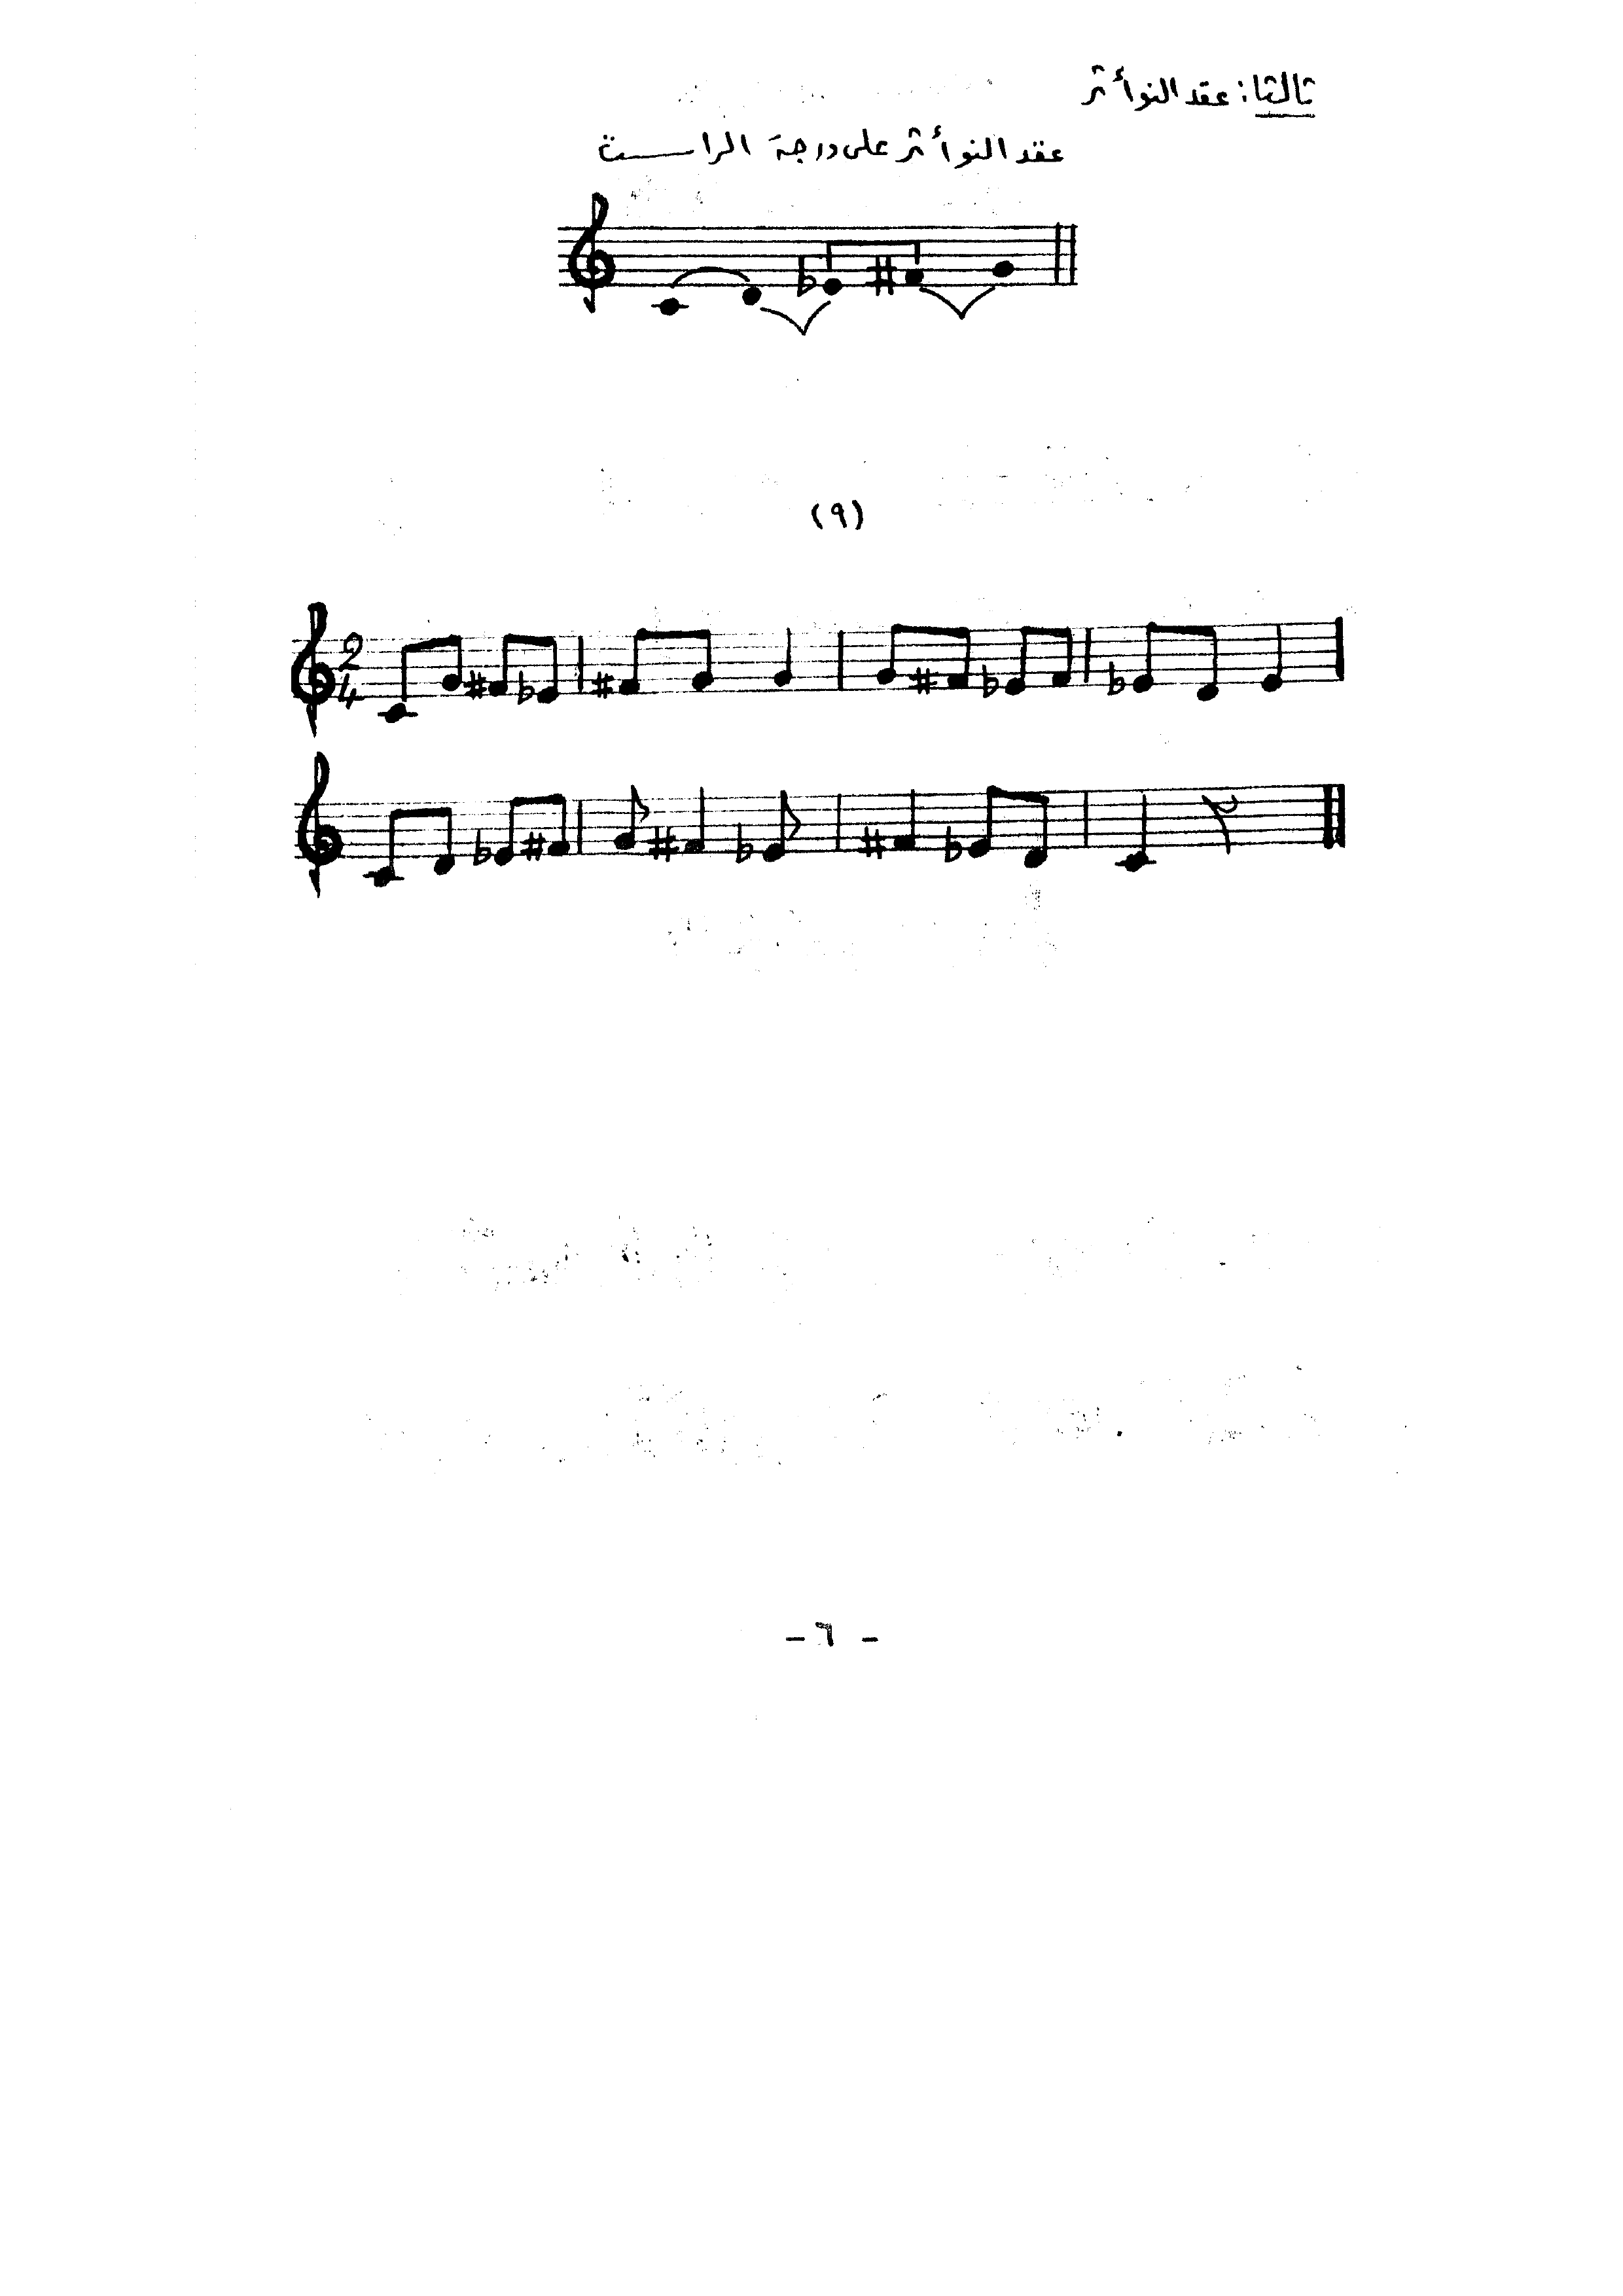 ثالثا: عقد النوأثر
عقد النوأثر على درجة الراست
(٩)
2
4
- ٦ -